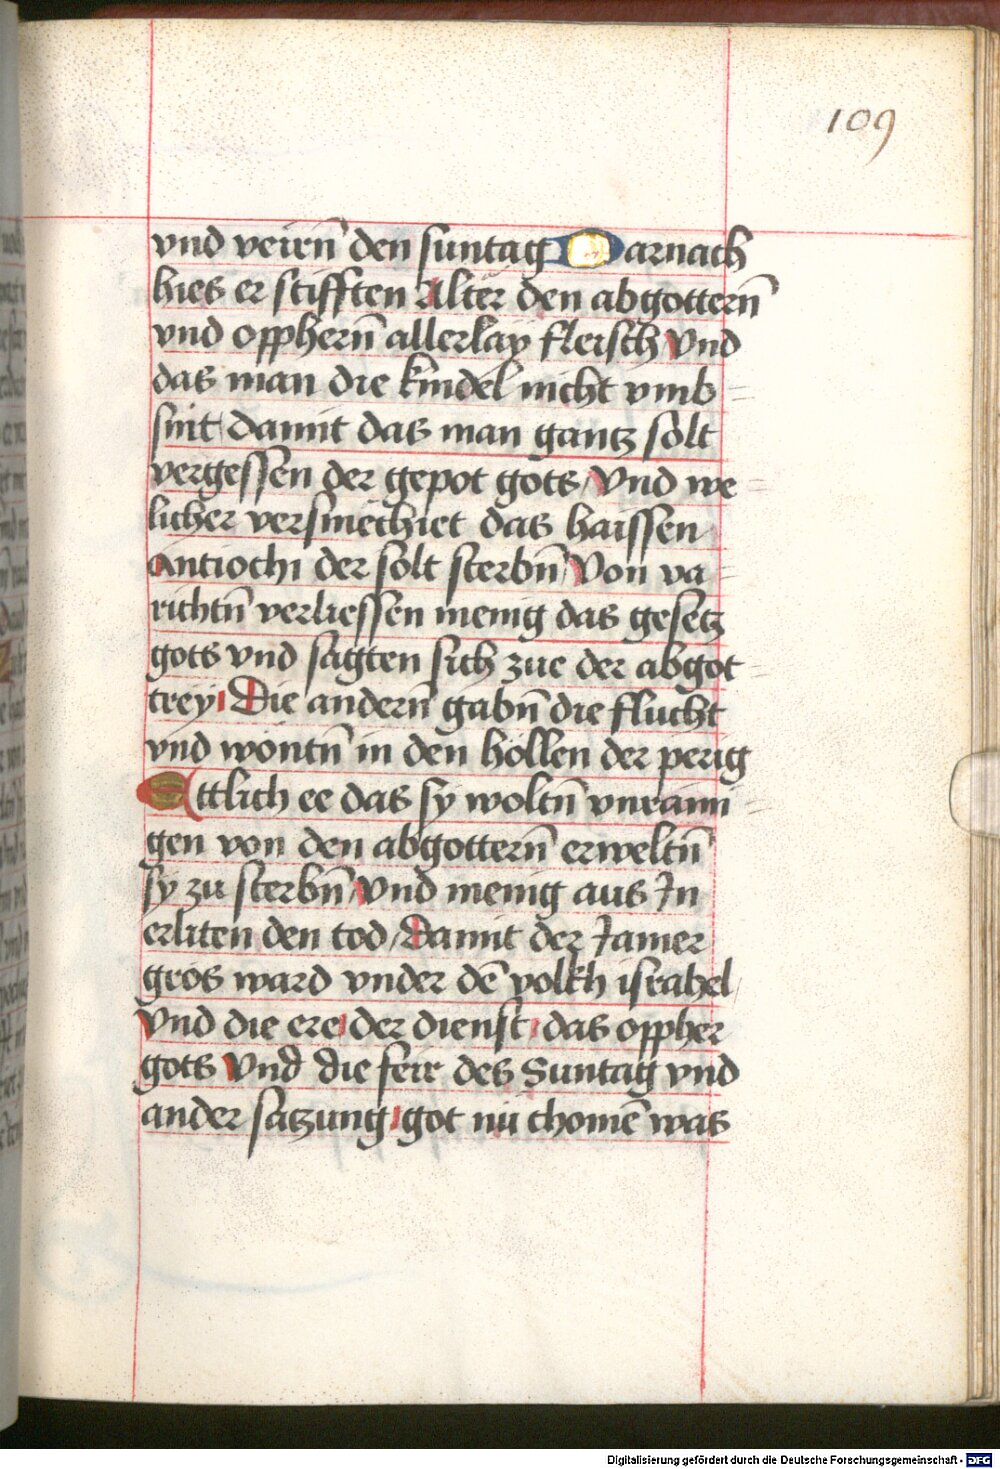 109
vnd veirn̄ den suntag Darnach
hies er stifften Alter den abgottern̄
vnd opphern̄ allerlay fleisch Vnd
das man die kindel nicht vmb=
snit damit das man gantz solt
vergessen der gepot gots / Vnd we=
licher versmechiet das haissen
Antiochi der solt sterbn̄ / Von va=
richtn̄ verliessen menig das gesetz
gots vnd sagten sich zue der abgot=
trey / Die andern̄ gabn̄ die flucht
vnd wontn̄ in den höllen der perig
Ettlich ee das sy woltn̄ vnraini=
gen von den abgottern̄ erweltn̄
sy zu sterbn̄ / Vnd menig aus Jn
erliten den tod / Damit der Jamer
gros ward vnder dē volkh israhel
Vnd die ere / der dienst / das oppher
gots Vnd die feir des Suntag vnd
ander satzung / got nü chomē was
Digitalisierung gefördert durch die Deutsche Forschungsgemeinschaft - DFG